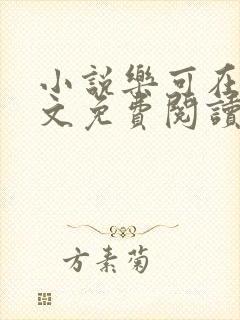 小說樂可在
文免費閱讀
方素菊